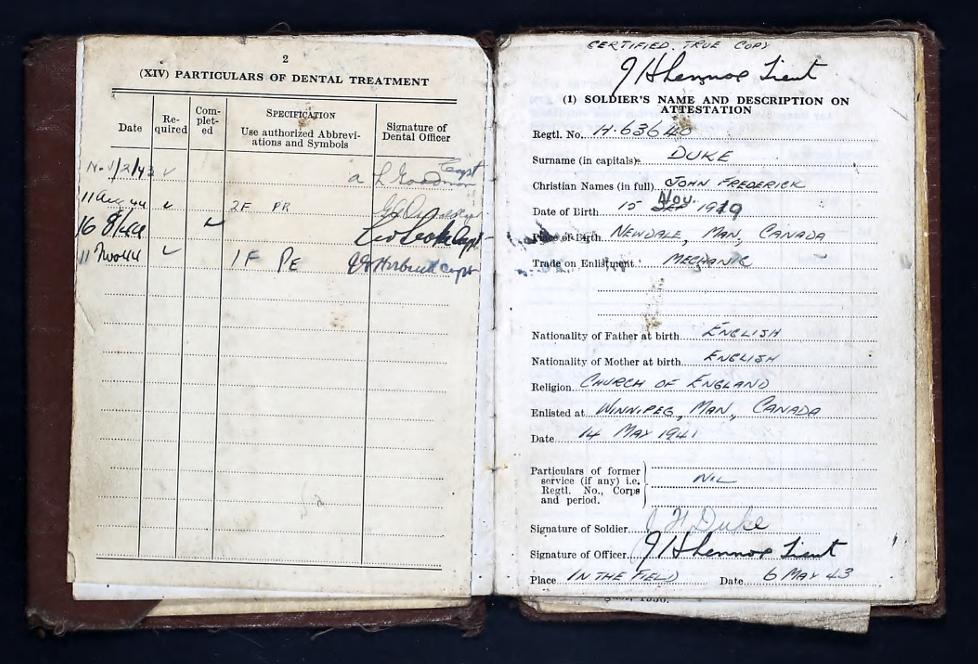 2
(XIV) PARTICULARS OF DENTAL TREATMENT
Date
Re-
quired
Com-
plet-
ed
SPECIFICATION
Use authorized Abbrevi-
ations and Symbols
Signature of
Dental Officer
1/2/43 Capt
a L Goodman
11 Aug 44 2F PR
16 8/44 Capt
11 Nov 44 1F PE Capt
CERTIFIED TRUE COPY
J H Lennox Lieut
(1) SOLDIER'S NAME AND DESCRIPTION ON
ATTESTATION
Regtl. No. H.63640
Surname (in capitals) DUKE
Christian Names (in full) JOHN FREDERICK
Nov.
Date of Birth 15 SEP 1919
Place of Birth NEWDALE, MAN, CANADA
Trade on Enlistment MECHANIC
Nationality of Father at birth ENGLISH
Nationality of Mother at birth ENGLISH
Religion CHURCH OF ENGLAND
Enlisted at WINNIPEG, MAN, CANADA
Date 14 MAY 1941
Particulars of former
service (if any) i.e.
Regtl. No., Corps
and period.
NIL
Signature of Soldier Duke
Signature of Officer J H Lennox Lieut
Place IN THE FIELD Date 6 MAY 43